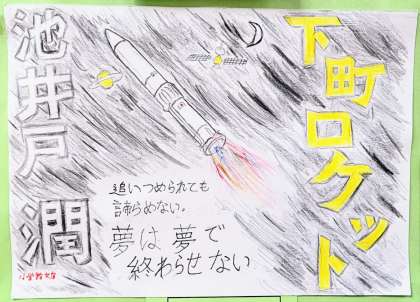 下町ロケット
池井戸潤
追いつめられても
諦らめない。
夢は夢で
終わらせない
小学館文庫